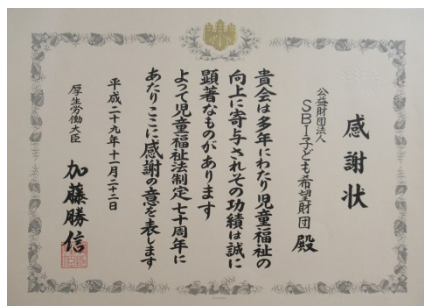 感謝状
公益財団法人
SBI子ども希望財団 殿
貴会は多年にわたり児童福祉の
向上に寄与されその功績は誠に
顕著なものがあります
よって児童福祉法制定七十周年に
あたりここに感謝の意を表します
平成二十九年十一月二十二日
厚生労働大臣 加藤勝信